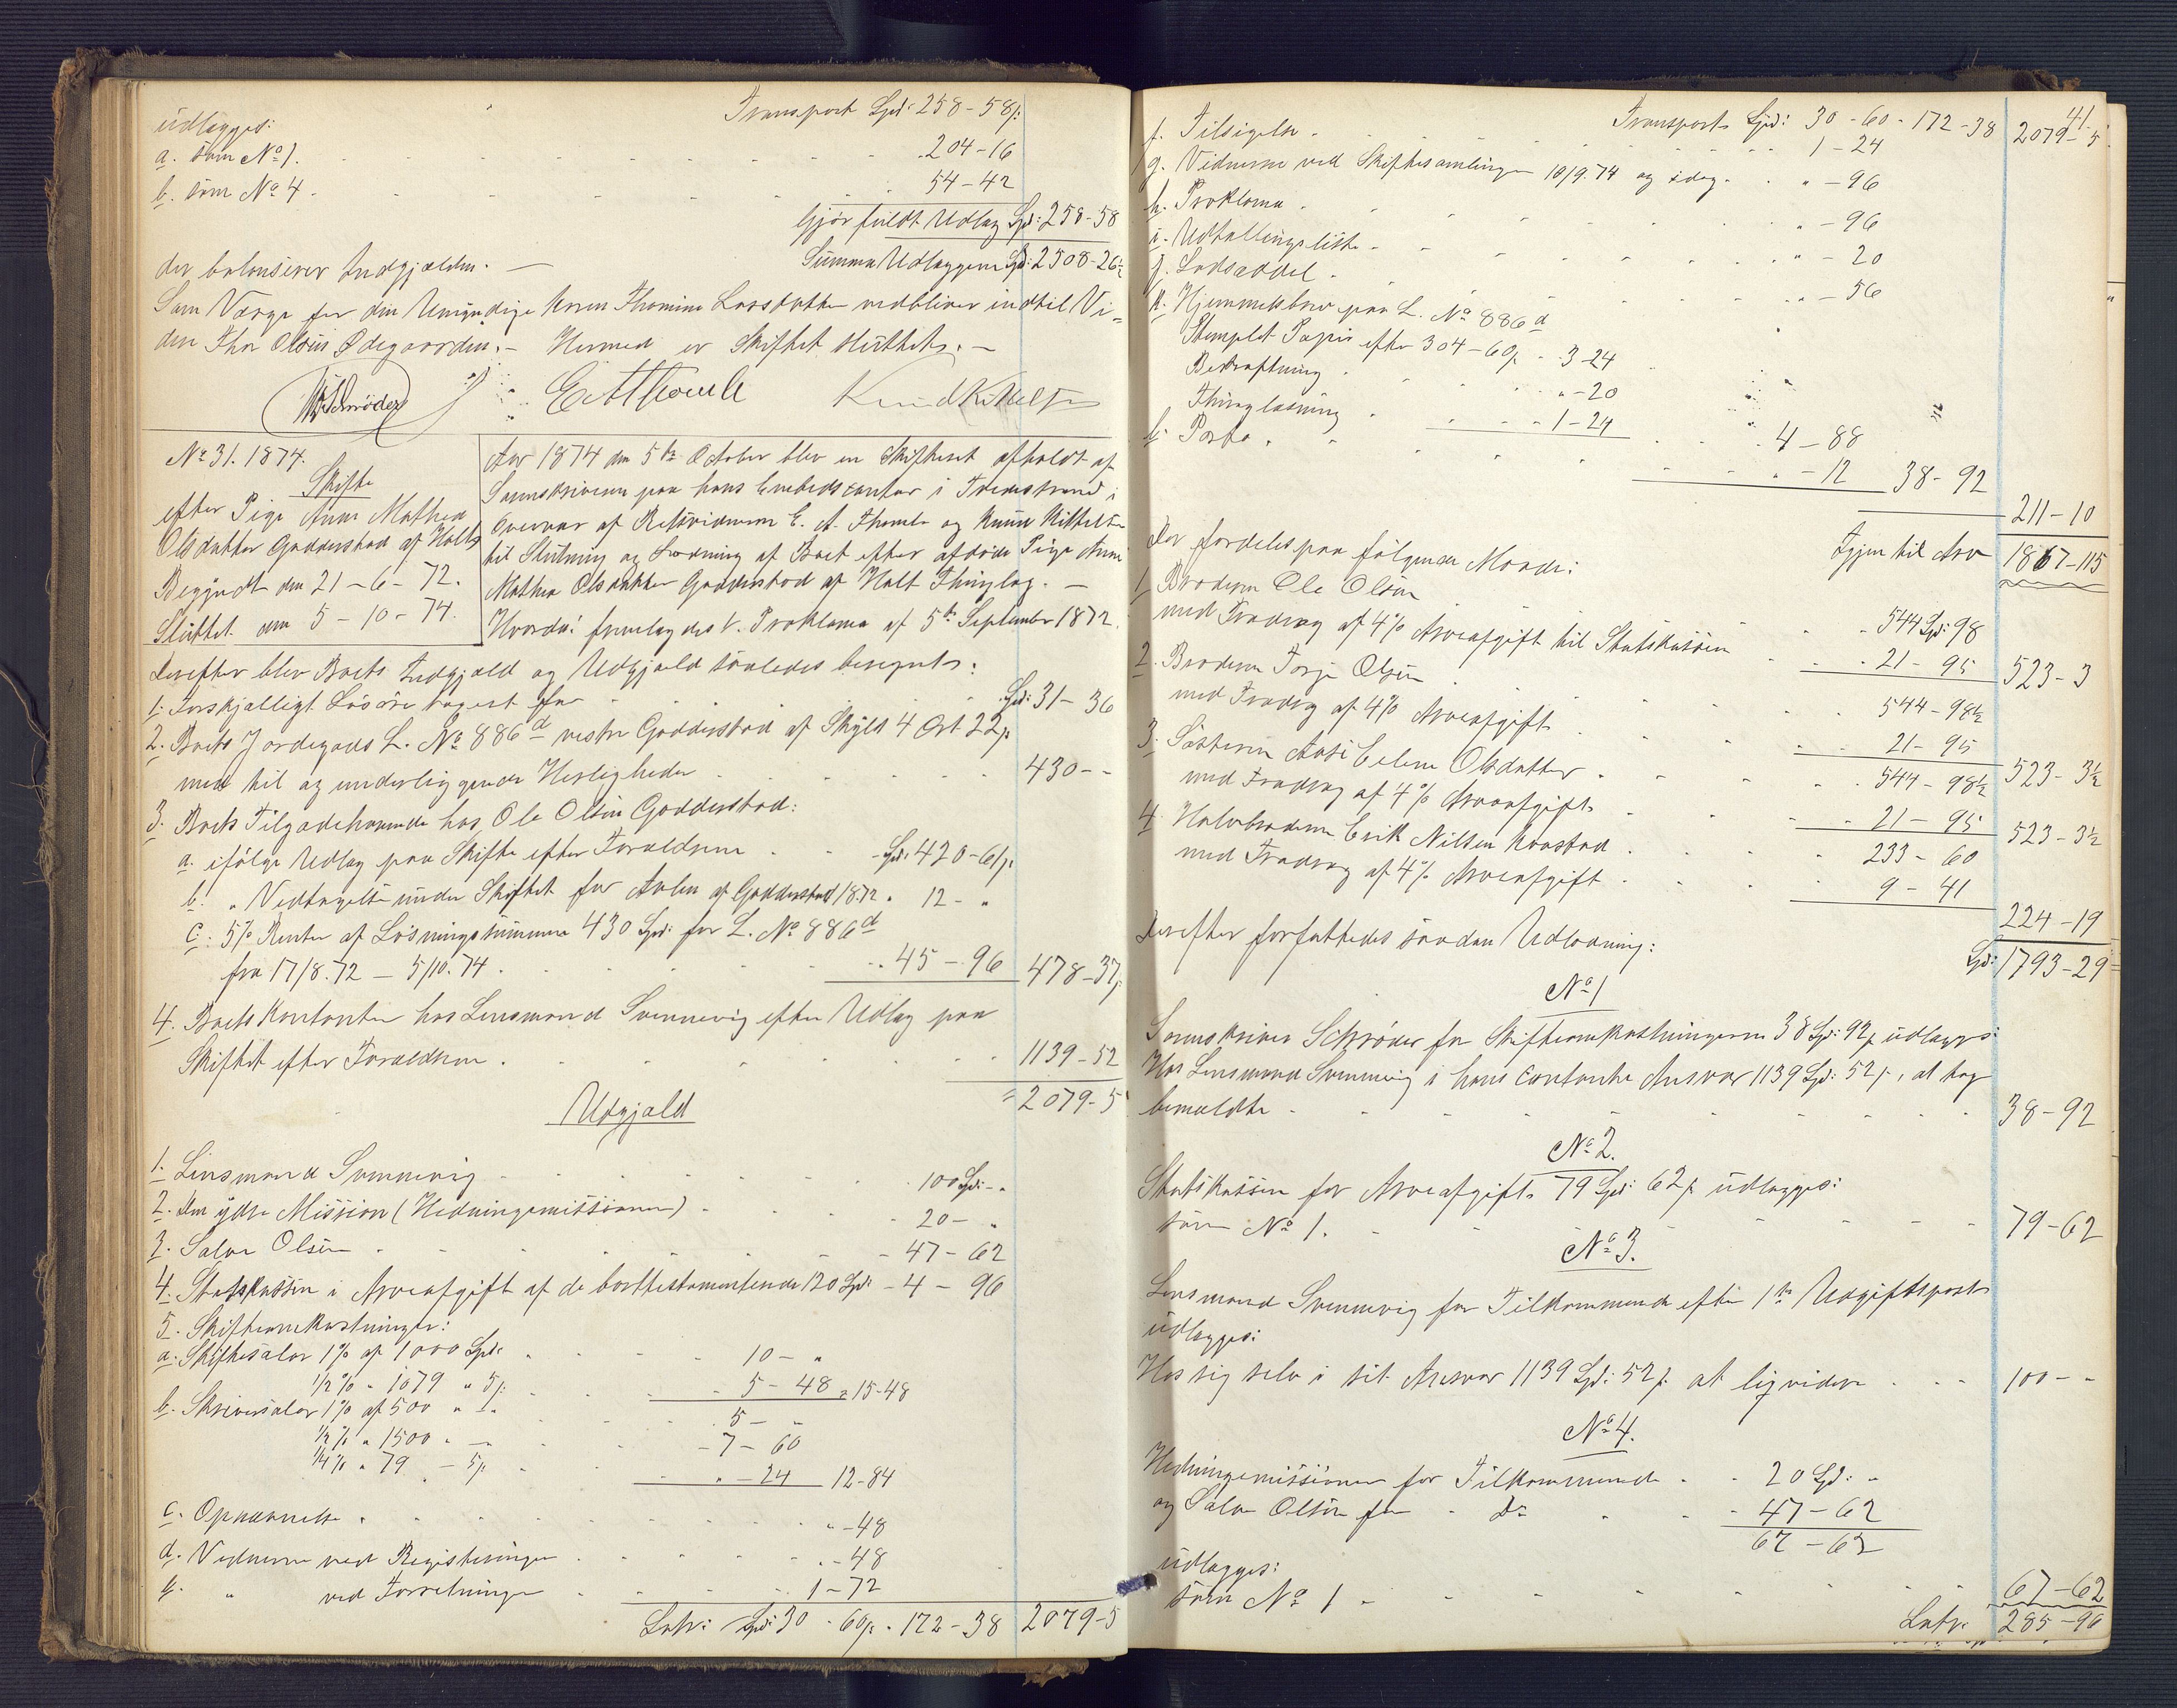 Transport Spd: 258-58 /:
udlægges:
a. som No 1. 204-16
b. som No 4. 54-42
Gjør fuldt Udlæg Spd: 258-58
Summa Udlæggene Spd: 2508-26½
der balanserer Indgjælden. —
Som Værge for den Umyndige Karen Thomine Larsdatter vedbliver indtil Vi-
dere Thor Olsen Ødegaarden. — Hermed er Skiftet sluttet. —
Schrøder E. A. Thomle Knud Kittelsen
No 31. 1874.
Skifte
efter Pige Anne Mathea
Olsdatter Godderstad af Holt
Begyndt den 21-6-72.
Sluttet den 5-10-74.
Aar 1874 den 5te October blev en Skifteret afholdt af
Sorenskriveren paa hans Embedscontor i Tvedestrand i
Overvær af Retsvidnerne E. A. Thomle og Knud Kittelsen
til Slutning og Lodning af Boet efter afdøde Pige Anne
Mathea Olsdatter Godderstad af Holt Thinglag. —
Hvorda: fremlagdes V. Proklama af 5te September 1872.
Derefter blev Boets Indgjæld og Udgjæld saaledes beregnet:
1. Forskjelligt Løsøre taxert for Spd: 31-36
2. Boets Jordegods L. No 886 d vestre Godderstad af Skyld 4 Ort 22 /:
med til og underliggende Herligheder 430--
3. Boets Tilgodehavende hos Ole Olsen Godderstad:
a. ifølge Udlæg paa Skifte efter Forældrene Spd: 420-61 /:
b. " Vedtagelse under Skiftet for Avlen af Godderstad 1872 " 12-"
c. 5% Renter af Løsningssummen 430 Spd: for L. No 886 d
fra 17/8.72 — 5/10.74. 45-96 478-37 /:
4. Boets Kontanter hos Lensmand Svennevig efter Udlæg paa
Skiftet efter Forældrene. 1139-52
2079-5
Udgjæld
1. Lensmand Svennevig 100 Spd: -"
2. Den ydre Mission (Hedningemissionen) 20-"
3. Salve Olsen 47-62
4. Statskassen i Arveafgift af de borttestamenterede 120 Spd: 4-96
5. Skifteomkostninger:
a. Skiftesalær 1% af 1000 Spd: 10-"
½% " 1079 " 5 /: 5-48 = 15-48
b. Skriversalær 1% af 500 " 5-"
½% " 1500 " 7-60
¼% " 79 - 5 /: "-24 12-84
c. Opnævnelse "-48
d. Vidnerne ved Registeringen "-48
e. " ved Forretningen 1-72
Latr: Spd: 30 - 60 /: - 172-38 2079-5
41.
Transport Spd: 30-60 - 172-38 2079-5
f. Tilsigelse 1-24
g. Vidnerne ved Skiftesamlingen 10/9.74 og idag "-96
h. Proklama "-96
i. Udtællingsliste "-20
j. Lodseddel "-56
k. Hjemmelsbrev paa L. No 886 d
Stemplet Papir efter 304-60 /: 3-24
Bekræftning "-20
Thinglæsning 1-24 4-88
l. Porto "-12 38-92
211-10
Igjen til Arv 1867-115
Der fordeles paa følgende Maade:
1. Broderen Ole Olsen 544 Spd: 98
med Fradrag af 4% Arveafgift til Statskassen 21-95 523-3
2. Broderen Terje Olsen 544-98½
med Fradrag af 4% Arveafgift 21-95 523-3½
3. Søsteren Aasi Helene Olsdatter 544-98½
med Fradrag af 4% Arveafgift 21-95 523-3½
4. Halvbroderen Erik Nilsen Kvastad 233-60
med Fradrag af 4% Arveafgift 9-41 224-19
Spd: 1793-29
Derefter forfattedes saadan Udlodning:
No 1
Sorenskriver Schrøder for Skifteomkostningerne 38 Spd: 92 /: udlægges:
Hos Lensmand Svennevig i hans contante Ansvar 1139 Spd: 52 /:, at tage
bemeldte 38-92
No 2.
Statskassen for Arveafgift 79 Spd: 62 /: udlægges:
som No 1. 79-62
No 3.
Lensmand Svennevig for Tilkommende efter 1te Udgiftspost
udlægges:
Hos sig selv i sit Ansvar 1139 Spd: 52 /: at liqvidere 100--
No 4.
Hedningemissionen for Tilkommende 20 Spd: "
og Salve Olsen for Do 47-62
67-62
udlægges:
som No 1 67-62
Latr: 285-96